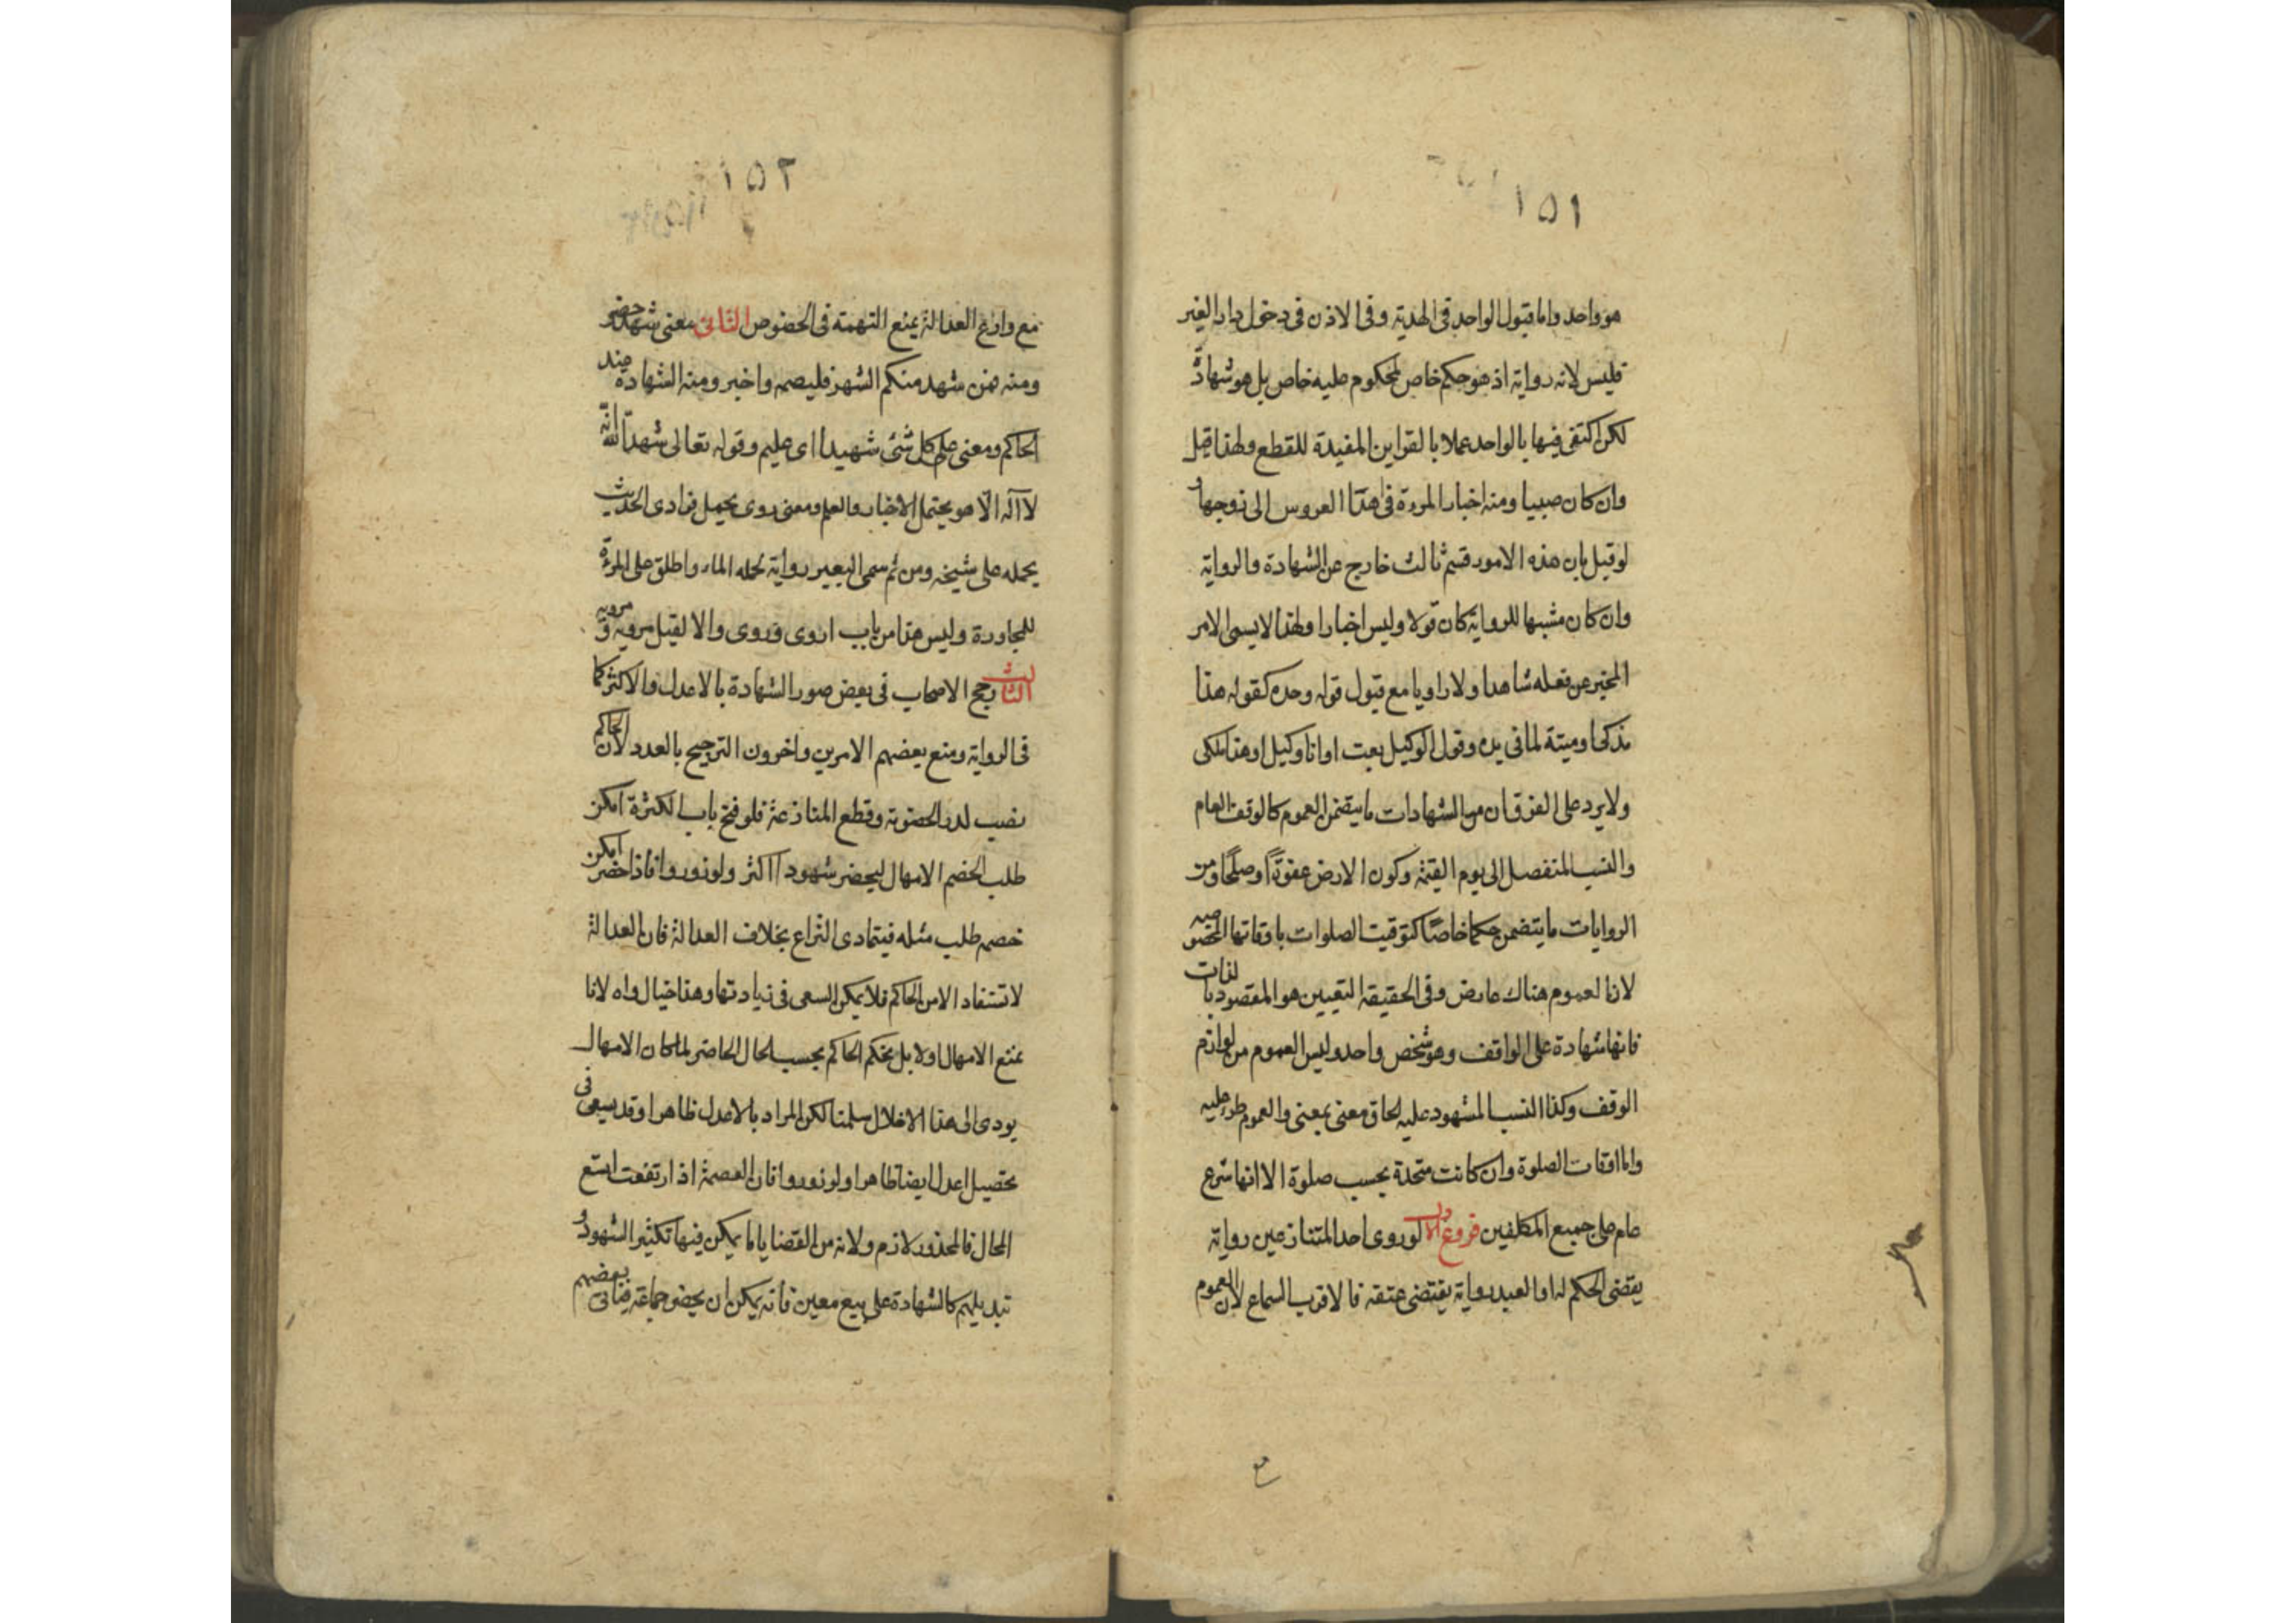 ١٥١
هو واحد واما قبول الواحد فى الهدية وفى الاذن فى دخول دار الغير
فليس لانه رواية اذ هو حكم خاص لمحكوم عليه خاص بل هو شهادة
لكن اكتفى فيها بالواحد عملا بالقراين المفيدة للقطع ولهذا قيل
وان كان صبيا ومنه اخبار المرءة فى هدا العروس الى زوجها و
لو قيل بان هذه الامور قسم ثالث خارج عن الشهادة والرواية
وان كان مشبها للرواية كان قولا وليس اخبارا ولهذا لا يسمى الامر
المخبر عن فعله شاهدا ولا راويا مع قبول قوله وحده كقوله هذا
مذكى او ميتة لما فى يده وقول الوكيل بعت او انا وكيل او هذا ملكى
ولا يرد على الفرق ان من الشهادات ما يتضمن العموم كالوقف العام
والنسب المتفصل الى يوم القيمة وكون الارض عنوة او صلحا ومن
الروايات ما يتضمن حكما خاصا كتوقيت الصلوات باوقاتها المخصوصة
لان العموم هناك عارض وفى الحقيقة التعيين هو المقصود بالذات
فانها شهادة على الواقف وهو شخص واحد وليس العموم من لوازم
الوقف وكذا النسب المشهود عليه الحاق معنى بمعنى والعموم طرء عليه
واما اوقات الصلوة وان كانت متحدة بحسب صلوة الا انها شرع
عام على جميع المكلفين فروع الاول لو روى احد المتنازعين رواية
يقتضى الحكم له او العبد رواية يقتضى عتقه فالاقرب السماع لان العموم
١٥٢
مع وازع العدالة يمنع التهمة فى الخصوص الثانى معنى شهد حضر
ومنه فمن شهد منكم الشهر فليصمه واخبر ومنه الشهادة عند
الحاكم ومعنى علم كل شئ شهيدا اى عليم وقوله تعالى شهد الله انه
لا اله الا هو يحتمل الاخبار والعلم ومعنى روى يحمل فرادى الحديث
يحمله على شيخه ومن ثم سمى البعير رواية لحمله الماء واطلق على المرءة
للمجاورة وليس هذا من باب اروى وروى والا لقيل مروية و مروية
الثالث رجح الاصحاب فى بعض صور الشهادة بالاعدل والاكثر كما
فى الرواية ومنع بعضهم الامرين واخرون الترجيح بالعدد لان الحاكم
نصب لدر الخصومة وقطع المنازعة فلو فتح باب الكثرة امكن
طلب الخصم الامهال ليحضر شهودا اكثر ولو زورا فاذا حضر امكن
خصمه طلب مثله فيتمادى النزاع بخلاف العدالة فان العدالة
لا تستفاد الا من الحاكم فلا يمكن السعى فى زيادتها وهذا خيال واه لانا
نمنع الامهال اولا بل يحكم الحاكم بحسب الحال الحاضر لما كان الامهال
يودى الى هذا الاخلال سلمنا لكن المراد بالاعدل ظاهرا وقد يسعى فى
تحصيل اعدل ايضا ظاهرا ولو زورا فان العصمة اذا ارتفعت اتسع
المجال فالمحذور لازم ولانه من القضايا ما يمكن فيها تكثير الشهود و
تبديلهم كالشهادة على بيع معين فانه يمكن ان يحضر جماعة فياتى بعضهم